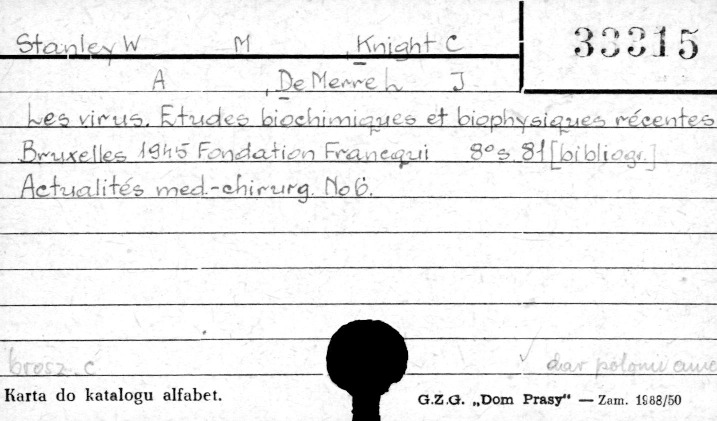 Stanley W M , Knight C 33315
A , De Merre J
Les virus. Etudes biochimiques et biophysiques récentes
Bruxelles 1945 Fondation Francqui 8° s. 81 [bibliogr.]
Actualités med.-chirurg. No 6.
brosz. c
dar polonii ame
Karta do katalogu alfabet.
G.Z.G. „Dom Prasy" — Zam. 1988/50